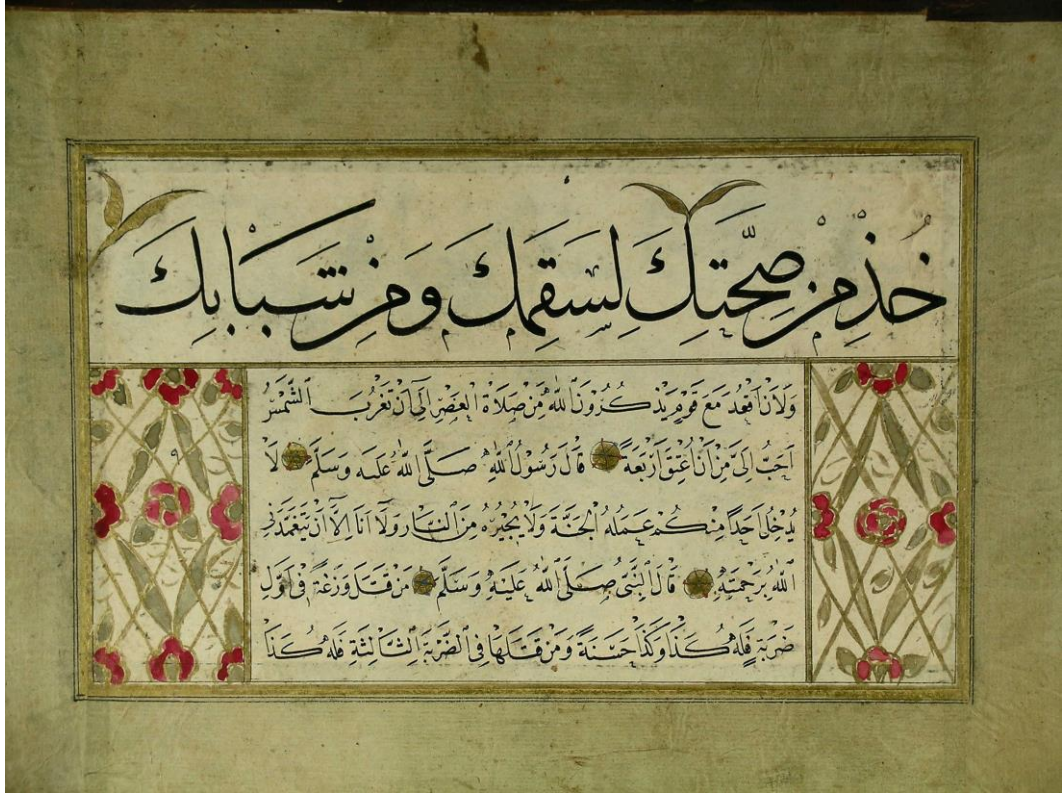 خُذْ مِنْ صِحَّتِكَ لِسَقَمِكَ وَمِنْ شَبَابِكَ
وَلَاَنْ اَقْعُدَ مَعَ قَوْمٍ يَذْكُرُونَ اللهَ مِنْ صَلَاةِ الْعَصْرِ اِلَى اَنْ تَغْرُبَ الشَّمْسُ
اَحَبُّ اِلَىَّ مِنْ اَنْ اُعْتِقَ اَرْبَعَةً قَالَ رَسُولُ اللهِ صَلَّى اللهُ عَلَيْهِ وَسَلَّمَ لَا
يُدْخِلُ اَحَدًا مِنْكُمْ عَمَلُهُ الْجَنَّةَ وَلَا يُجِيْرُهُ مِنَ النَّارِ وَلَا اَنَا اِلَّا اَنْ يَتَغَمَّدَنِى
اللهُ بِرَحْمَتِهِ قَالَ النَّبِىُّ صَلَّى اللهُ عَلَيْهِ وَسَلَّمَ مَنْ قَتَلَ وَزَغَةً فِى اَوَّلِ
ضَرْبَةٍ فَلَهُ كَذَا وَكَذَا حَسَنَةً وَمَنْ قَتَلَهَا فِى الضَّرْبَةِ الثَّالِثَةِ فَلَهُ كَذَا